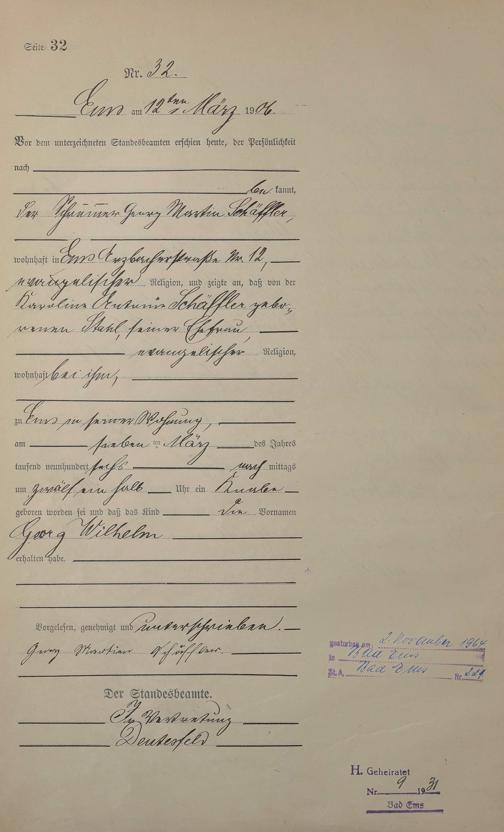 Seite 32
Nr. 32.
Ems am 12ten März 1906.
Vor dem unterzeichneten Standesbeamten erschien heute, der Persönlichkeit
nach
bekannt,
der Schreiner Georg Martin Schäffler,
wohnhaft in Ems Arzbacherstraße Nr. 12,
evangelischer Religion, und zeigte an, daß von der
Karoline Antonie Schäffler gebo-
renen Stahl, seiner Ehefrau,
evangelischer Religion,
wohnhaft bei ihm,
zu Ems in seiner Wohnung,
am sieben ten März des Jahres
tausend neunhundert sechs nach mittags
um zwölf ein halb Uhr ein Knabe
geboren worden sei und daß das Kind die Vornamen
Georg Wilhelm
erhalten habe.
Vorgelesen, genehmigt und unterschrieben.
Georg Martin Schäffler.
Der Standesbeamte.
In Vertretung
gestorben am 2. November 1964
in Bad Ems
St.A. Bad Ems Nr.
H. Geheiratet
Nr. 9 1931
Bad Ems